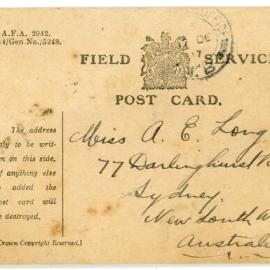 A.F.A. 2042.
114/Gen.No./5248.
FIELD SERVICE
POST CARD.
The address
only to be writ-
ten on this side.
If anything else
is added the
post card will
be destroyed.
[Crown Copyright Reserved.]
Miss A. E. Long
77 Darlinghurst
Sydney
New South W
Australia